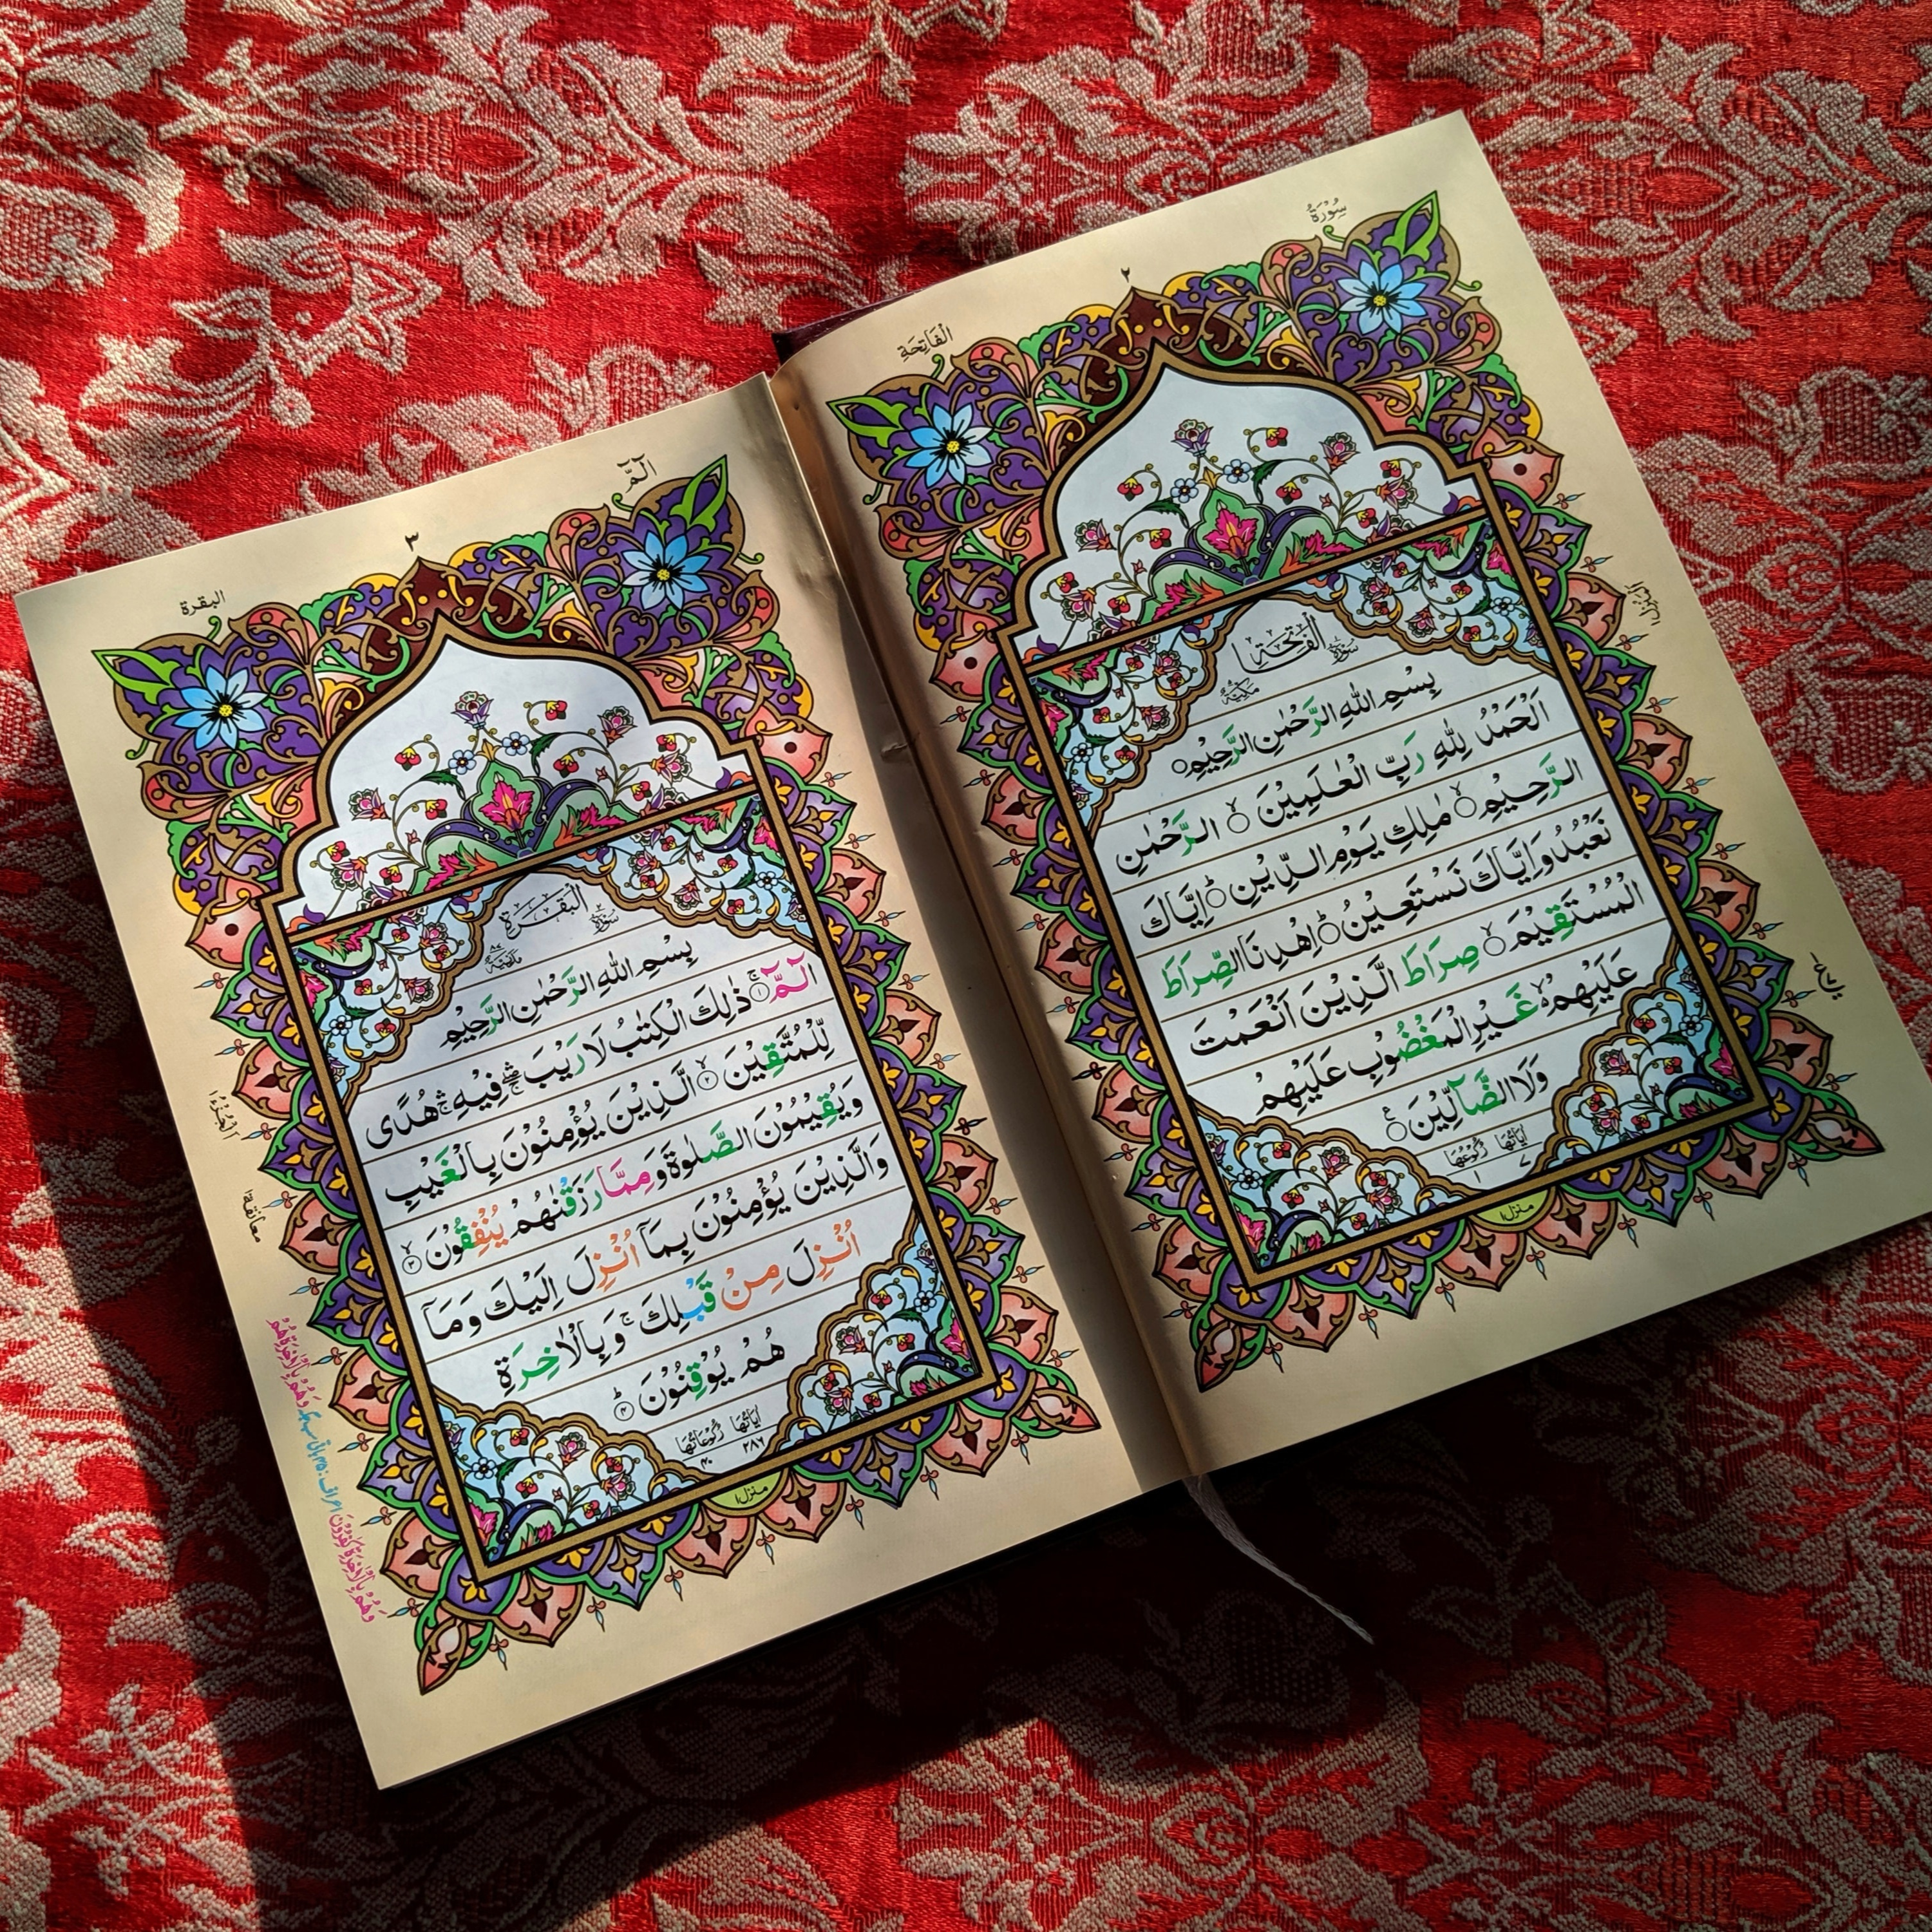 سُوْرَةُ
٢
الْفَاتِحَةِ
سُوْرَةُ الْفَاتِحَةِ
مَكِّيَّةٌ
بِسْمِ اللّٰهِ الرَّحْمٰنِ الرَّحِيْمِ
اَلْحَمْدُ لِلّٰهِ رَبِّ الْعٰلَمِيْنَ الرَّحْمٰنِ
الرَّحِيْمِ مٰلِكِ يَوْمِ الدِّيْنِ اِيَّاكَ
نَعْبُدُ وَاِيَّاكَ نَسْتَعِيْنُ اِهْدِنَا الصِّرَاطَ
الْمُسْتَقِيْمَ صِرَاطَ الَّذِيْنَ اَنْعَمْتَ
عَلَيْهِمْ غَيْرِ الْمَغْضُوْبِ عَلَيْهِمْ
وَلَا الضَّآلِّيْنَ
اٰيَاتُهَا رُكُوْعُهَا
٧ ١
منزل١
الٓمّٓ
٣
البقرة
سُوْرَةُ الْبَقَرَةِ
مَدَنِيَّةٌ
بِسْمِ اللّٰهِ الرَّحْمٰنِ الرَّحِيْمِ
الٓمّٓ ١ ذٰلِكَ الْكِتٰبُ لَا رَيْبَ فِيْهِ هُدًى
لِّلْمُتَّقِيْنَ ٢ الَّذِيْنَ يُؤْمِنُوْنَ بِالْغَيْبِ
وَيُقِيْمُوْنَ الصَّلٰوةَ وَمِمَّا رَزَقْنٰهُمْ يُنْفِقُوْنَ ٣
وَالَّذِيْنَ يُؤْمِنُوْنَ بِمَآ اُنْزِلَ اِلَيْكَ وَمَآ
اُنْزِلَ مِنْ قَبْلِكَ وَبِالْاٰخِرَةِ
هُمْ يُوْقِنُوْنَ ٤
اٰيَاتُهَا رُكُوْعَاتُهَا
٢٨٦ ٤٠
منزل١
معانقة